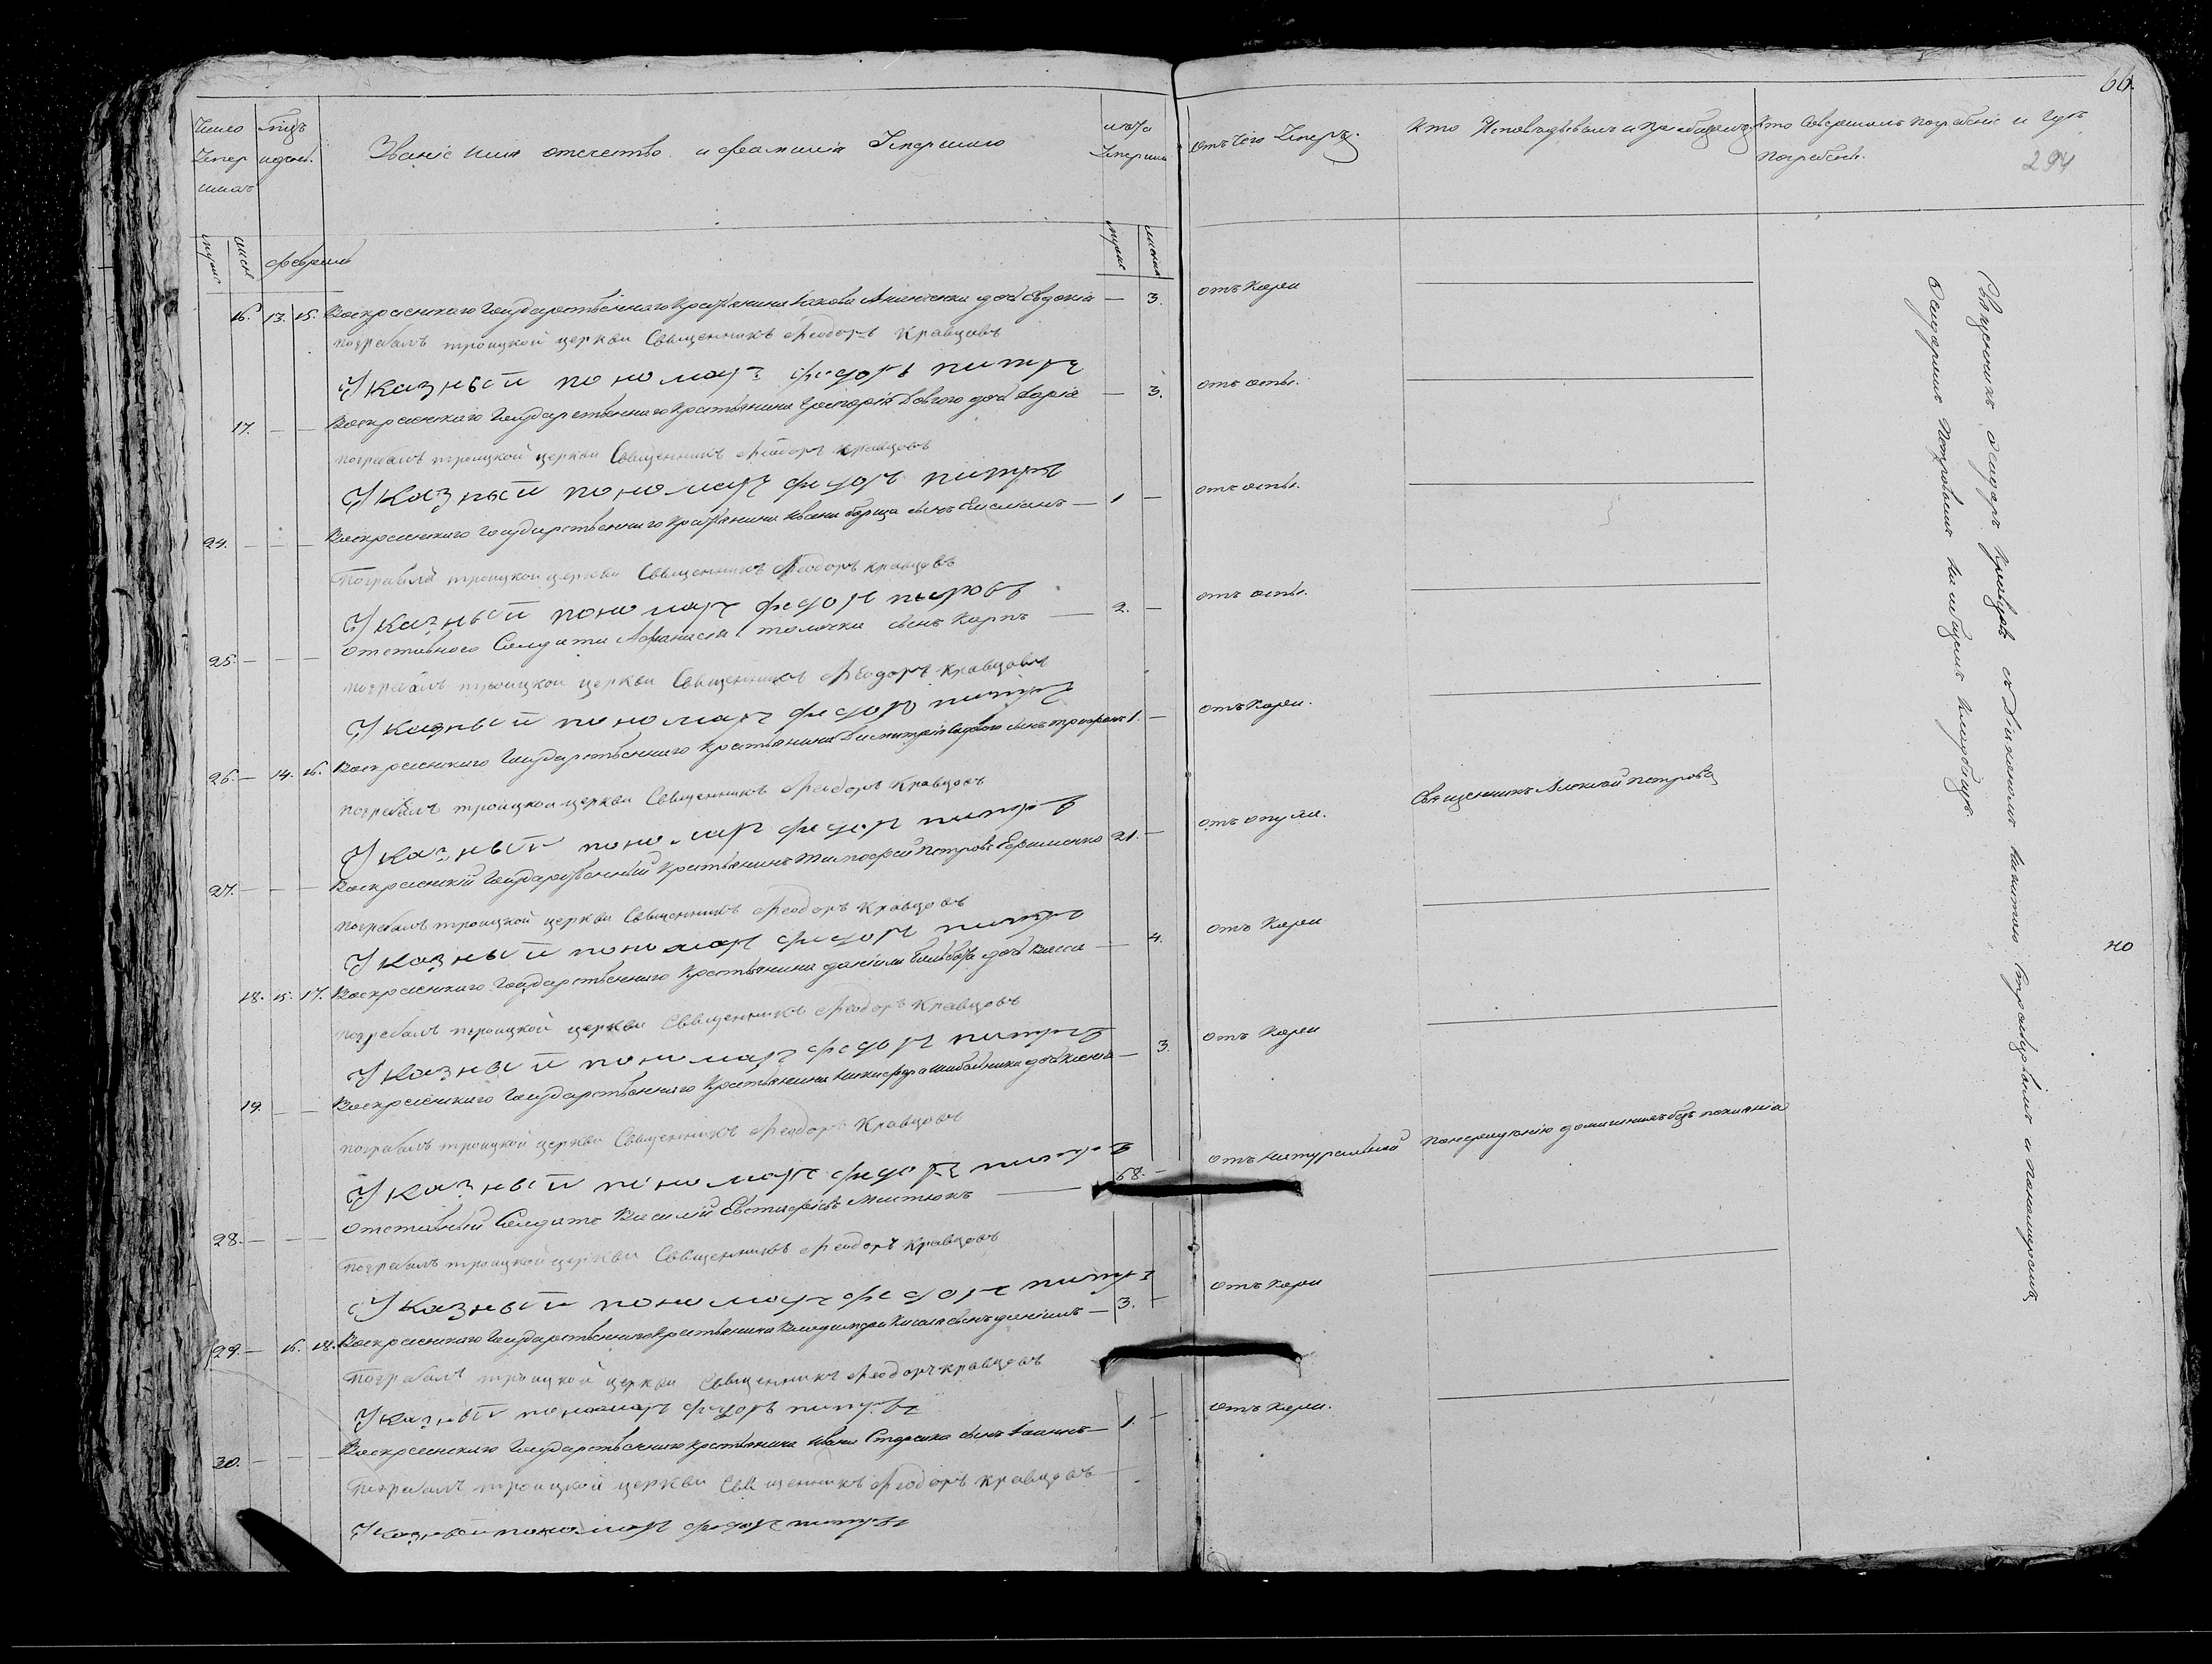 66.
294
Число Умершихъ
Мѣсяцъ и день.
Званіе имя отечество и фамиліа Умершаго
лѣта Умершаго
отъ Чего Умеръ.
Кто Исповѣдывалъ и Пріобщалъ
Кто Совершалъ погребеніе и Гдѣ погребенъ.
мужс
женс
февраль
мужс
женск
16. 13. 15. Воскресенскаго Государственнаго Крестьянина Іакова дочь Евдокіа — 3. отъ Кори
погребалъ троицкой церкви Священникъ Феодоръ Кравцовъ
Указный пономарь федоръ питровъ
17. — — Воскресенскаго Государственнаго Крестьянина Григоріа Довгого дочь Даріа — 3. отъ оспы.
погребалъ троицкой церкви Священникъ Феодоръ Кравцовъ
Указный пономарь федоръ питровъ
24. — — — Воскресенскаго Государственнаго Крестьянина Ивана борща сынъ — 1 — отъ оспы.
Погребалъ троицкой церкви Священникъ Феодоръ кравцовъ
Указный пономарь федоръ питровъ
25. — — — Отставного Солдата Афанасіа толочка сынъ Карпъ — 2. — отъ оспы.
погребалъ троицкой церкви Священникъ Феодоръ Кравцовъ
Указный пономарь федоръ питровъ
26. — 14. 16. Воскресенскаго Государственнаго Крестьянина Димитріа сынъ трофимъ 1. — отъ Кори.
погребалъ троицкой церкви Священникъ Феодоръ Кравцовъ
Указный пономарь федоръ питровъ
27. — — — Воскресенскій Государственный Крестьянинъ Тимофей Петровъ Ефименко 21. — отъ опухли. Священникъ Алексѣй Петровъ
погребалъ троицкой церкви Священникъ Феодоръ Кравцовъ
Указный пономарь федоръ питровъ
18. 15. 17. Воскресенскаго Государственнаго Крестьянина даніила дочь Васса — 4. отъ Кори
погребалъ троицкой церкви Священникъ Феодоръ Кравцовъ
Указный пономарь федоръ питровъ
19. — — Воскресенскаго Государственнаго Крестьянина Никифора дочь Ксеніа — 3. отъ Кори
погребалъ троицкой церкви Священникъ Феодоръ Кравцовъ
Указный пономарь федоръ питровъ
28. — — — Отставный Солдатъ Василій Евстафіевъ — 68. — отъ натуральной по нерадѣнію домашнихъ безъ покаяніа
погребалъ троицкой церкви Священникъ Феодоръ Кравцовъ
Указный пономарь федоръ питровъ
29. — 16. 18. Воскресенскаго Государственнаго Крестьянина Владимира сынъ даніилъ — 3. — отъ Кори
Погребалъ троицкой церкви Священникъ Феодоръ кравцовъ
Указный пономарь федоръ питровъ
30. — — — Воскресенскаго Государственнаго Крестьянина Ивана сынъ Іоаннъ — 1. — отъ Кори.
Погребалъ троицкой церкви Священникъ Феодоръ кравцовъ
Указный пономарь федоръ питровъ
Священникъ Феодоръ Кравцовъ съ Діакономъ Никитою и пономаремъ
Феодоромъ Петровымъ на общемъ кладбищѣ
но